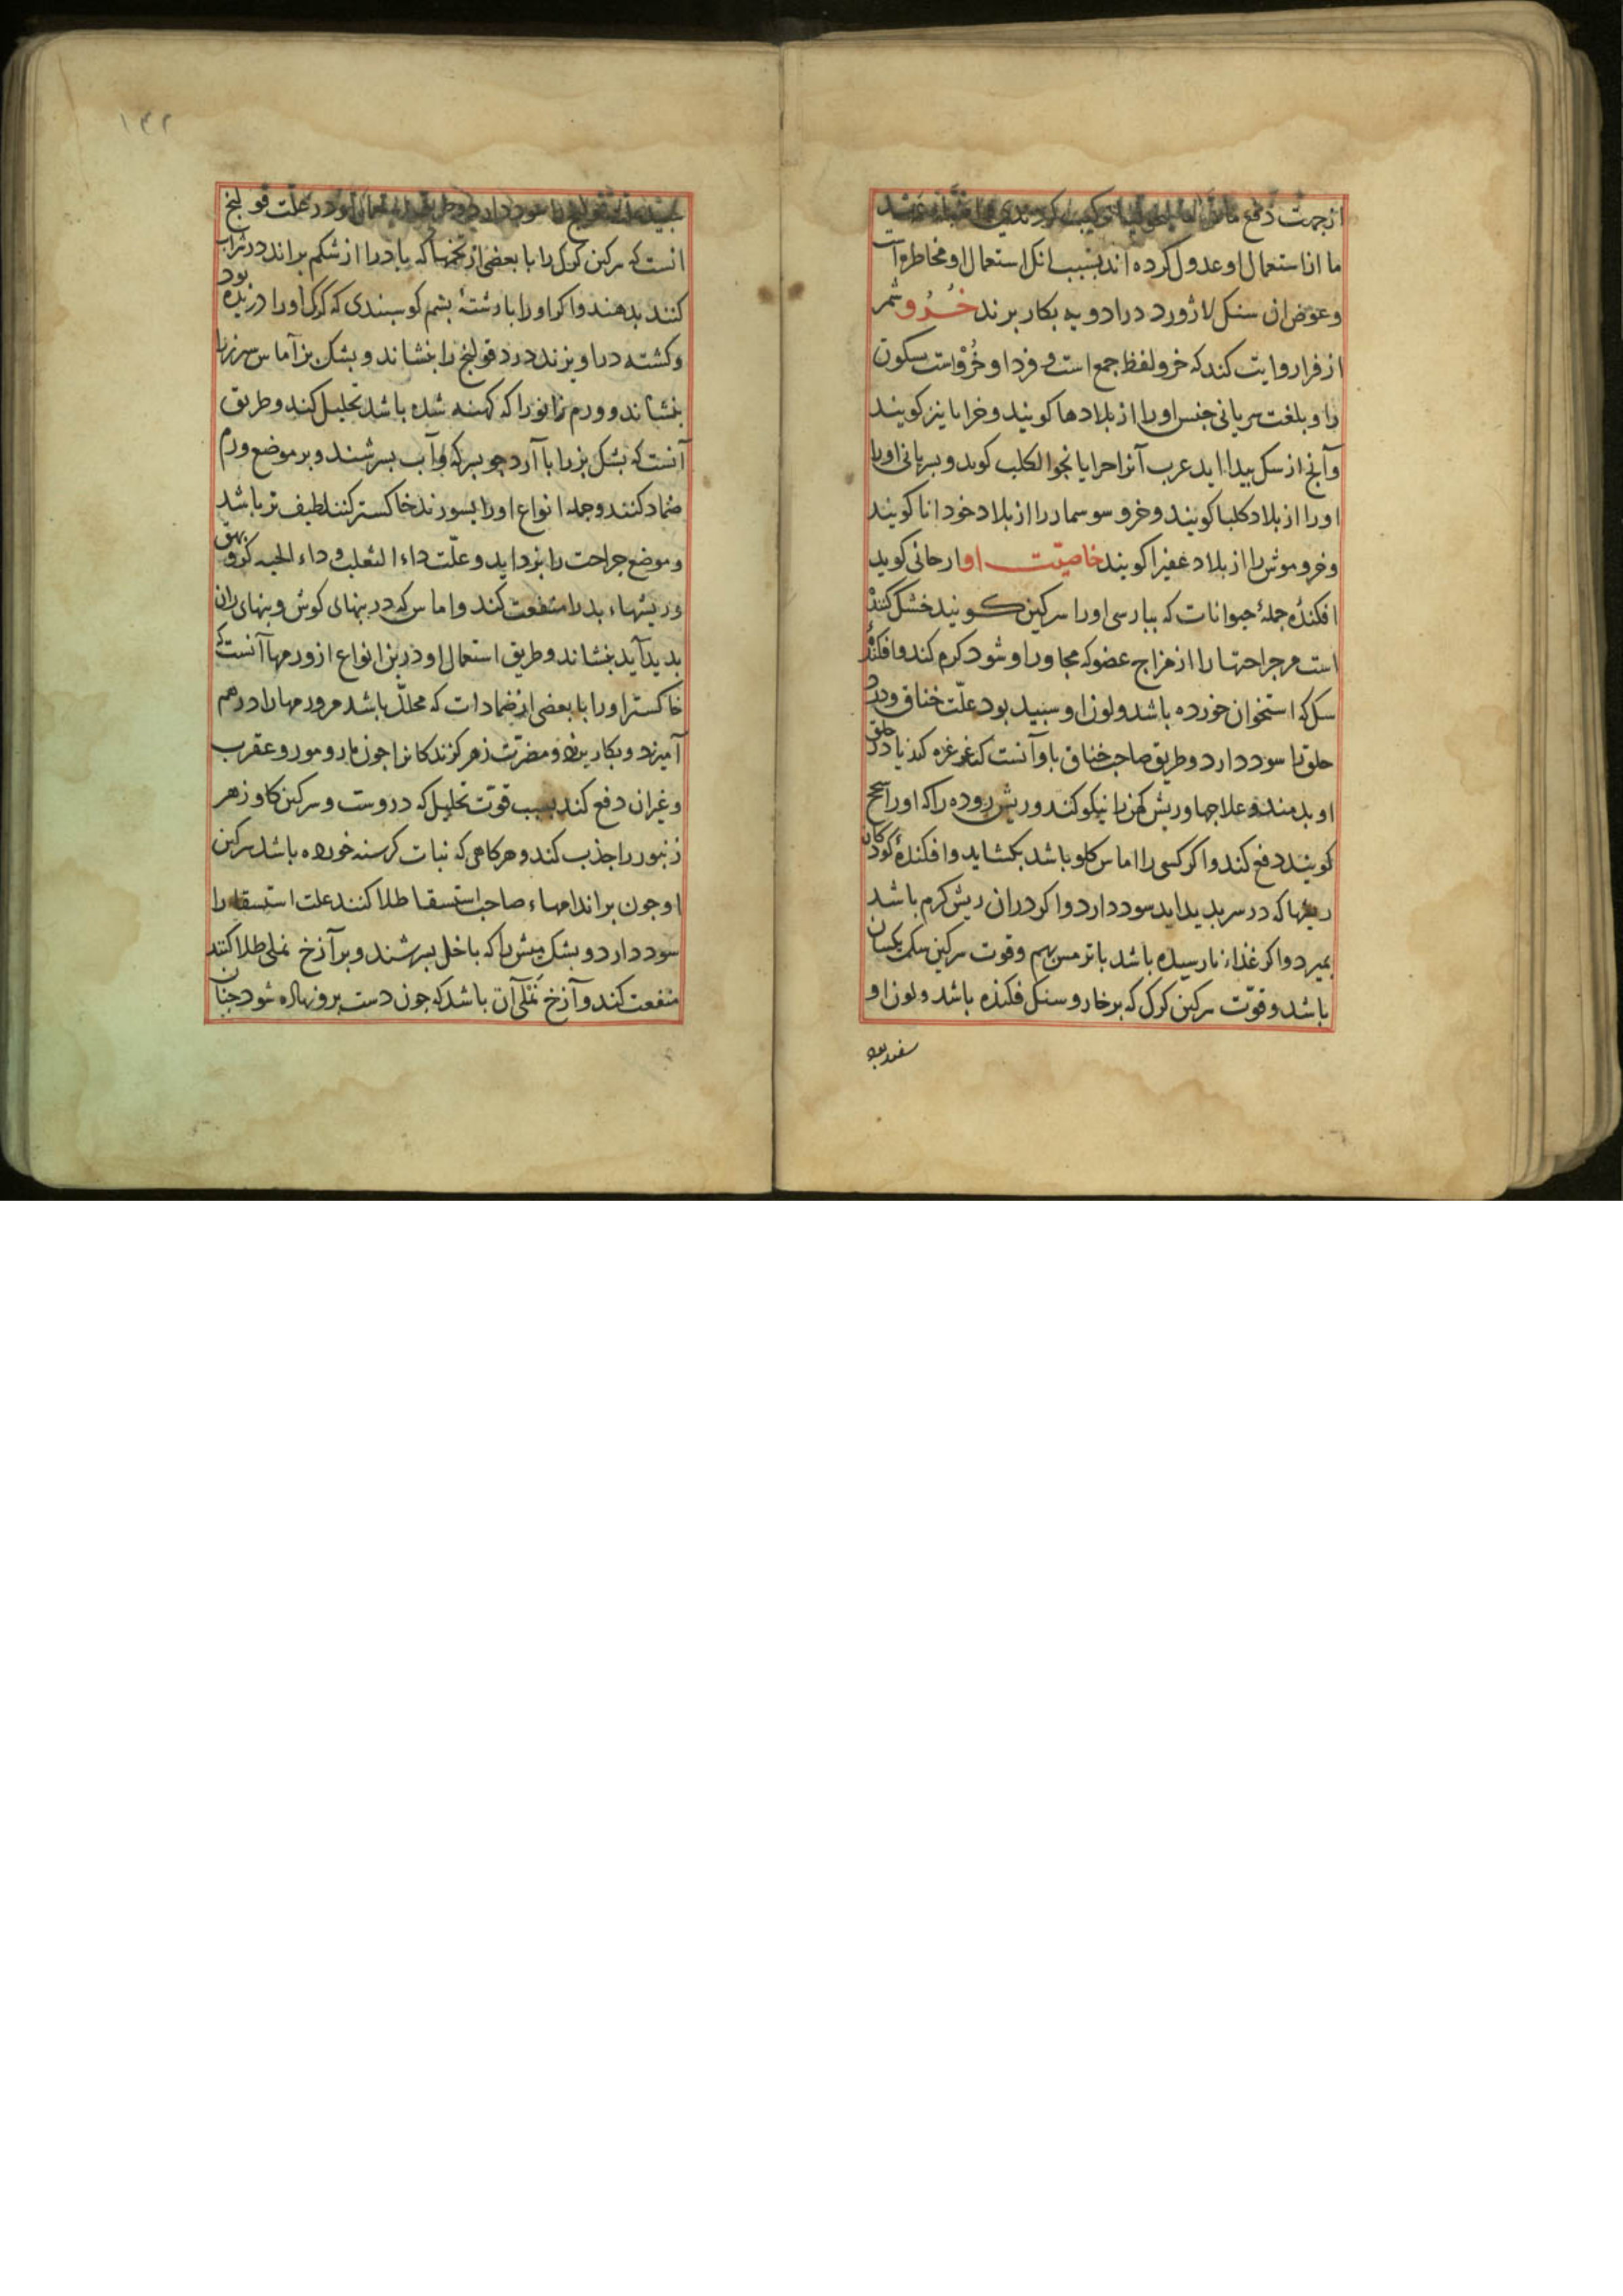 از جهت دفع
ما از استعمال او عدول کرده اند بسبب انک استعمال او مخاطره است
و عوض ان سنک لاژورد در ادویه بکار برند خرو شمر
از فرا روایت کند که خرو لفظ جمع است و فرد او خرو است بسکون
را و بلغت سریانی جنس او را از بلادها کویند و خرایا نیز کویند
و آنچ از سک بیدا اید عرب آنرا حرایا نجو الکلب کوید و بسریانی اورا
اورا از بلاد کلبا کویند و خرو سوسمار را از بلاد خودانا کویند
و خرو موش را از بلاد عفیرا کویند خاصیّت او ارحانی کوید
افکندهٔ جملهٔ حیوانات که ببارسی اورا سرکین کویند خشک کننده
است مر جراحتها را از مزاج عضو که مجاور او شود کرم کند و افکندهٔ
سک که استخوان خورده باشد و لون او سبید بود علّت خناق و درد
حلق را سود دارد و طریق صاحب خناق با و آنست که غرغره کند یا در حلق
او بدمند و علاجها و ریش کهن را نیکو کند و ریش روده را که اورا سحج
کویند دفع کند و اکر کسی را اماس کلو باشد بکشاید و افکندهٔ کودکان
ریشها که در سر بدید اید سود دارد و اکر در ان ریش کرم باشد
بمیرد و اکر غذاء نارسیده باشد با ترمس بهم و قوت سرکین سک یکسان
باشد و قوّت سرکین کرک که بر خار و سنک فکنده باشد و لون او
سفید بود
۱۴۲
سبید علت قولنج را سود دارد و طریق استعمال او در علّت قولنج
انست که سرکین کرک را با بعضی از تخمها که باد را از شکم براند در شراب
کنند بدهند و اکر اورا با رشتهٔ بشم کوسبندی که کرک اورا دریده بود
و کشته در اویزند درد قولنج را بنشاند و بشک بز آماس سرز را
بنشاند و ورم زانو را که کهنه شده باشد تحلیل کند و طریق
آنست که بشک بز را با آرد جو بسرکه و آب بسرشند و بر موضع ورم
ضماد کنند و جمله انواع اورا بسوزند خاکستر کنند لطیف تر باشد
و موضع جراحت را بزداید و علّت داء الثعلب و داء الحیه کر و بهق
و ریشهاء بد را منفعت کند و اماس که در بنهای کوش و بنهای ران
بدید آید بنشاند و طریق استعمال او درین انواع از ورمها آنست که
خاکستر اورا با بعضی از ضمادات که محلّل باشد مر ورمها را در هم
آمیزد و بکار برند و مضرّت زهر کزندکانرا چون مار و مور و عقرب
و غیر ان دفع کند بسبب قوّت تحلیل که در وست و سرکین کاو زهر
زنبور را جذب کند و هر کاهی که نبات کرسنه خورده باشد سرکین
او چون بر اندامهاء صاحب استسقا طلا کنند علت استسقا را
سود دارد و بشک میش را که باخل بسرشند و بر آزخ نملی طلا کنند
منفعت کند و آزخ نملی آن باشد که چون دست برو نهاده شود چنان